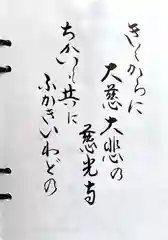 きくからに
大慈大悲の
慈光寺
ちかいも共に
ふかきいわどの